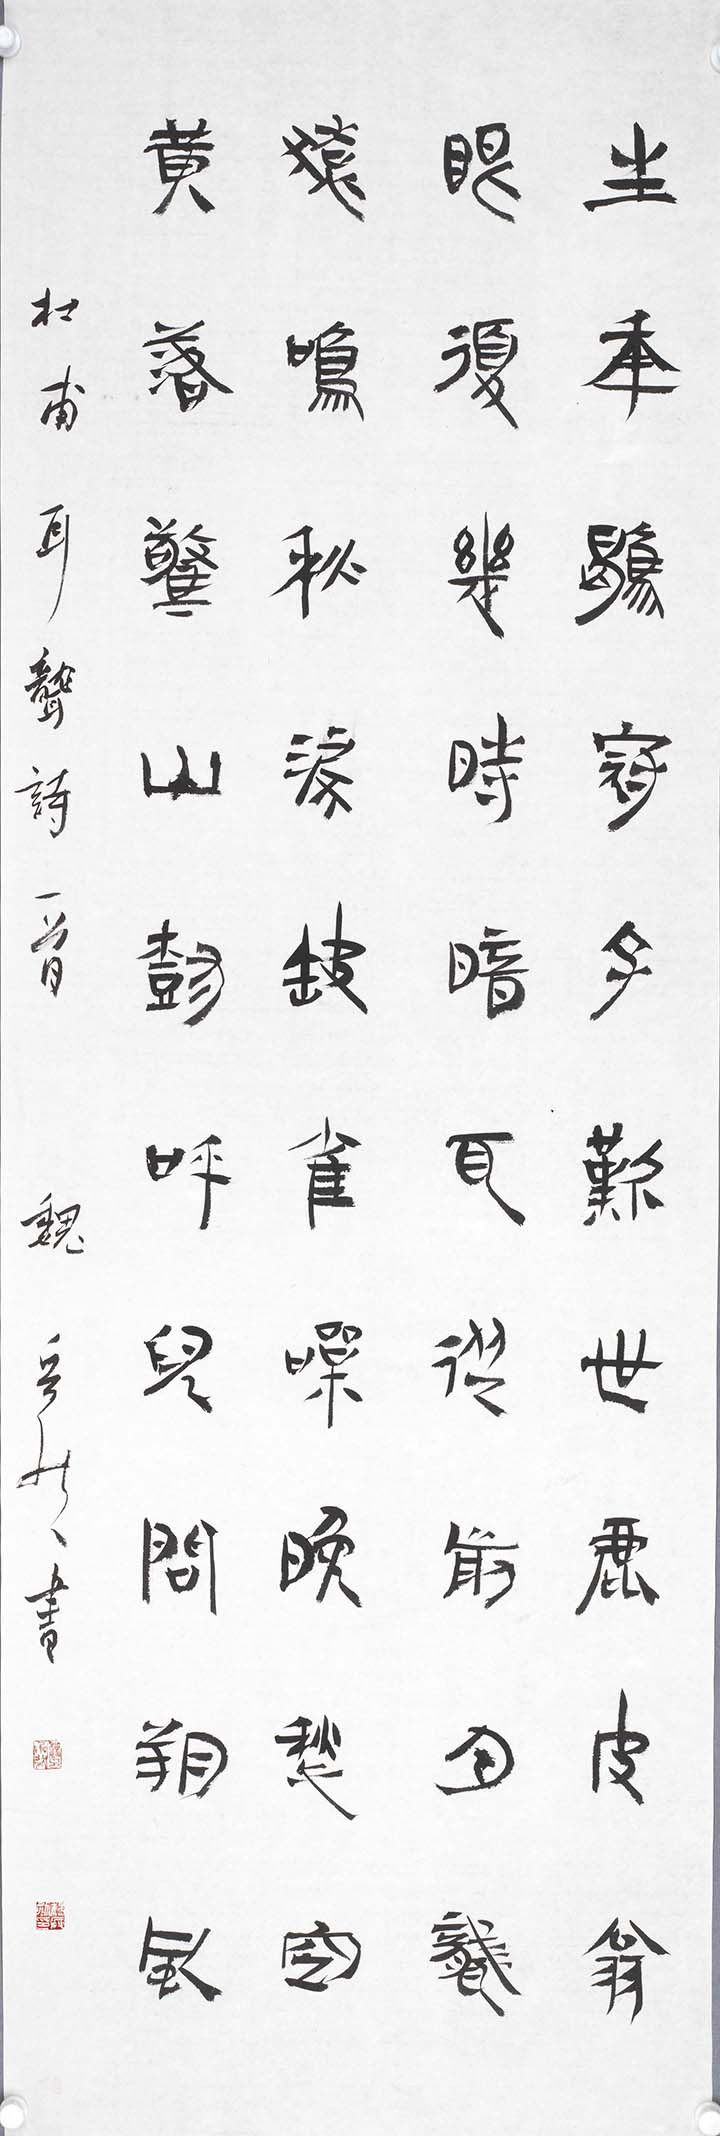 生年鶡冠子歎世鹿皮翁
眼復幾時暗耳從前月聾
猿鳴秋淚缺雀噪晚愁空
黄落驚山樹呼兒問朔風
杜甫耳聾詩一首 魏 書